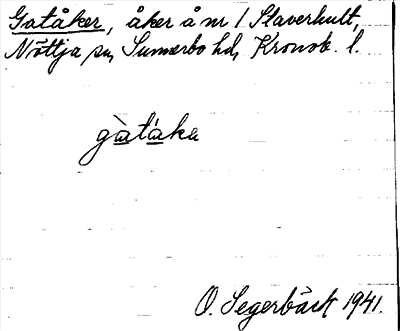 Gatåker, åker å nr 1 Staverhult,
Nöttja sn, Sunnerbo hd, Kronob. l.
gàtáka
O. Segerbäck 1941.